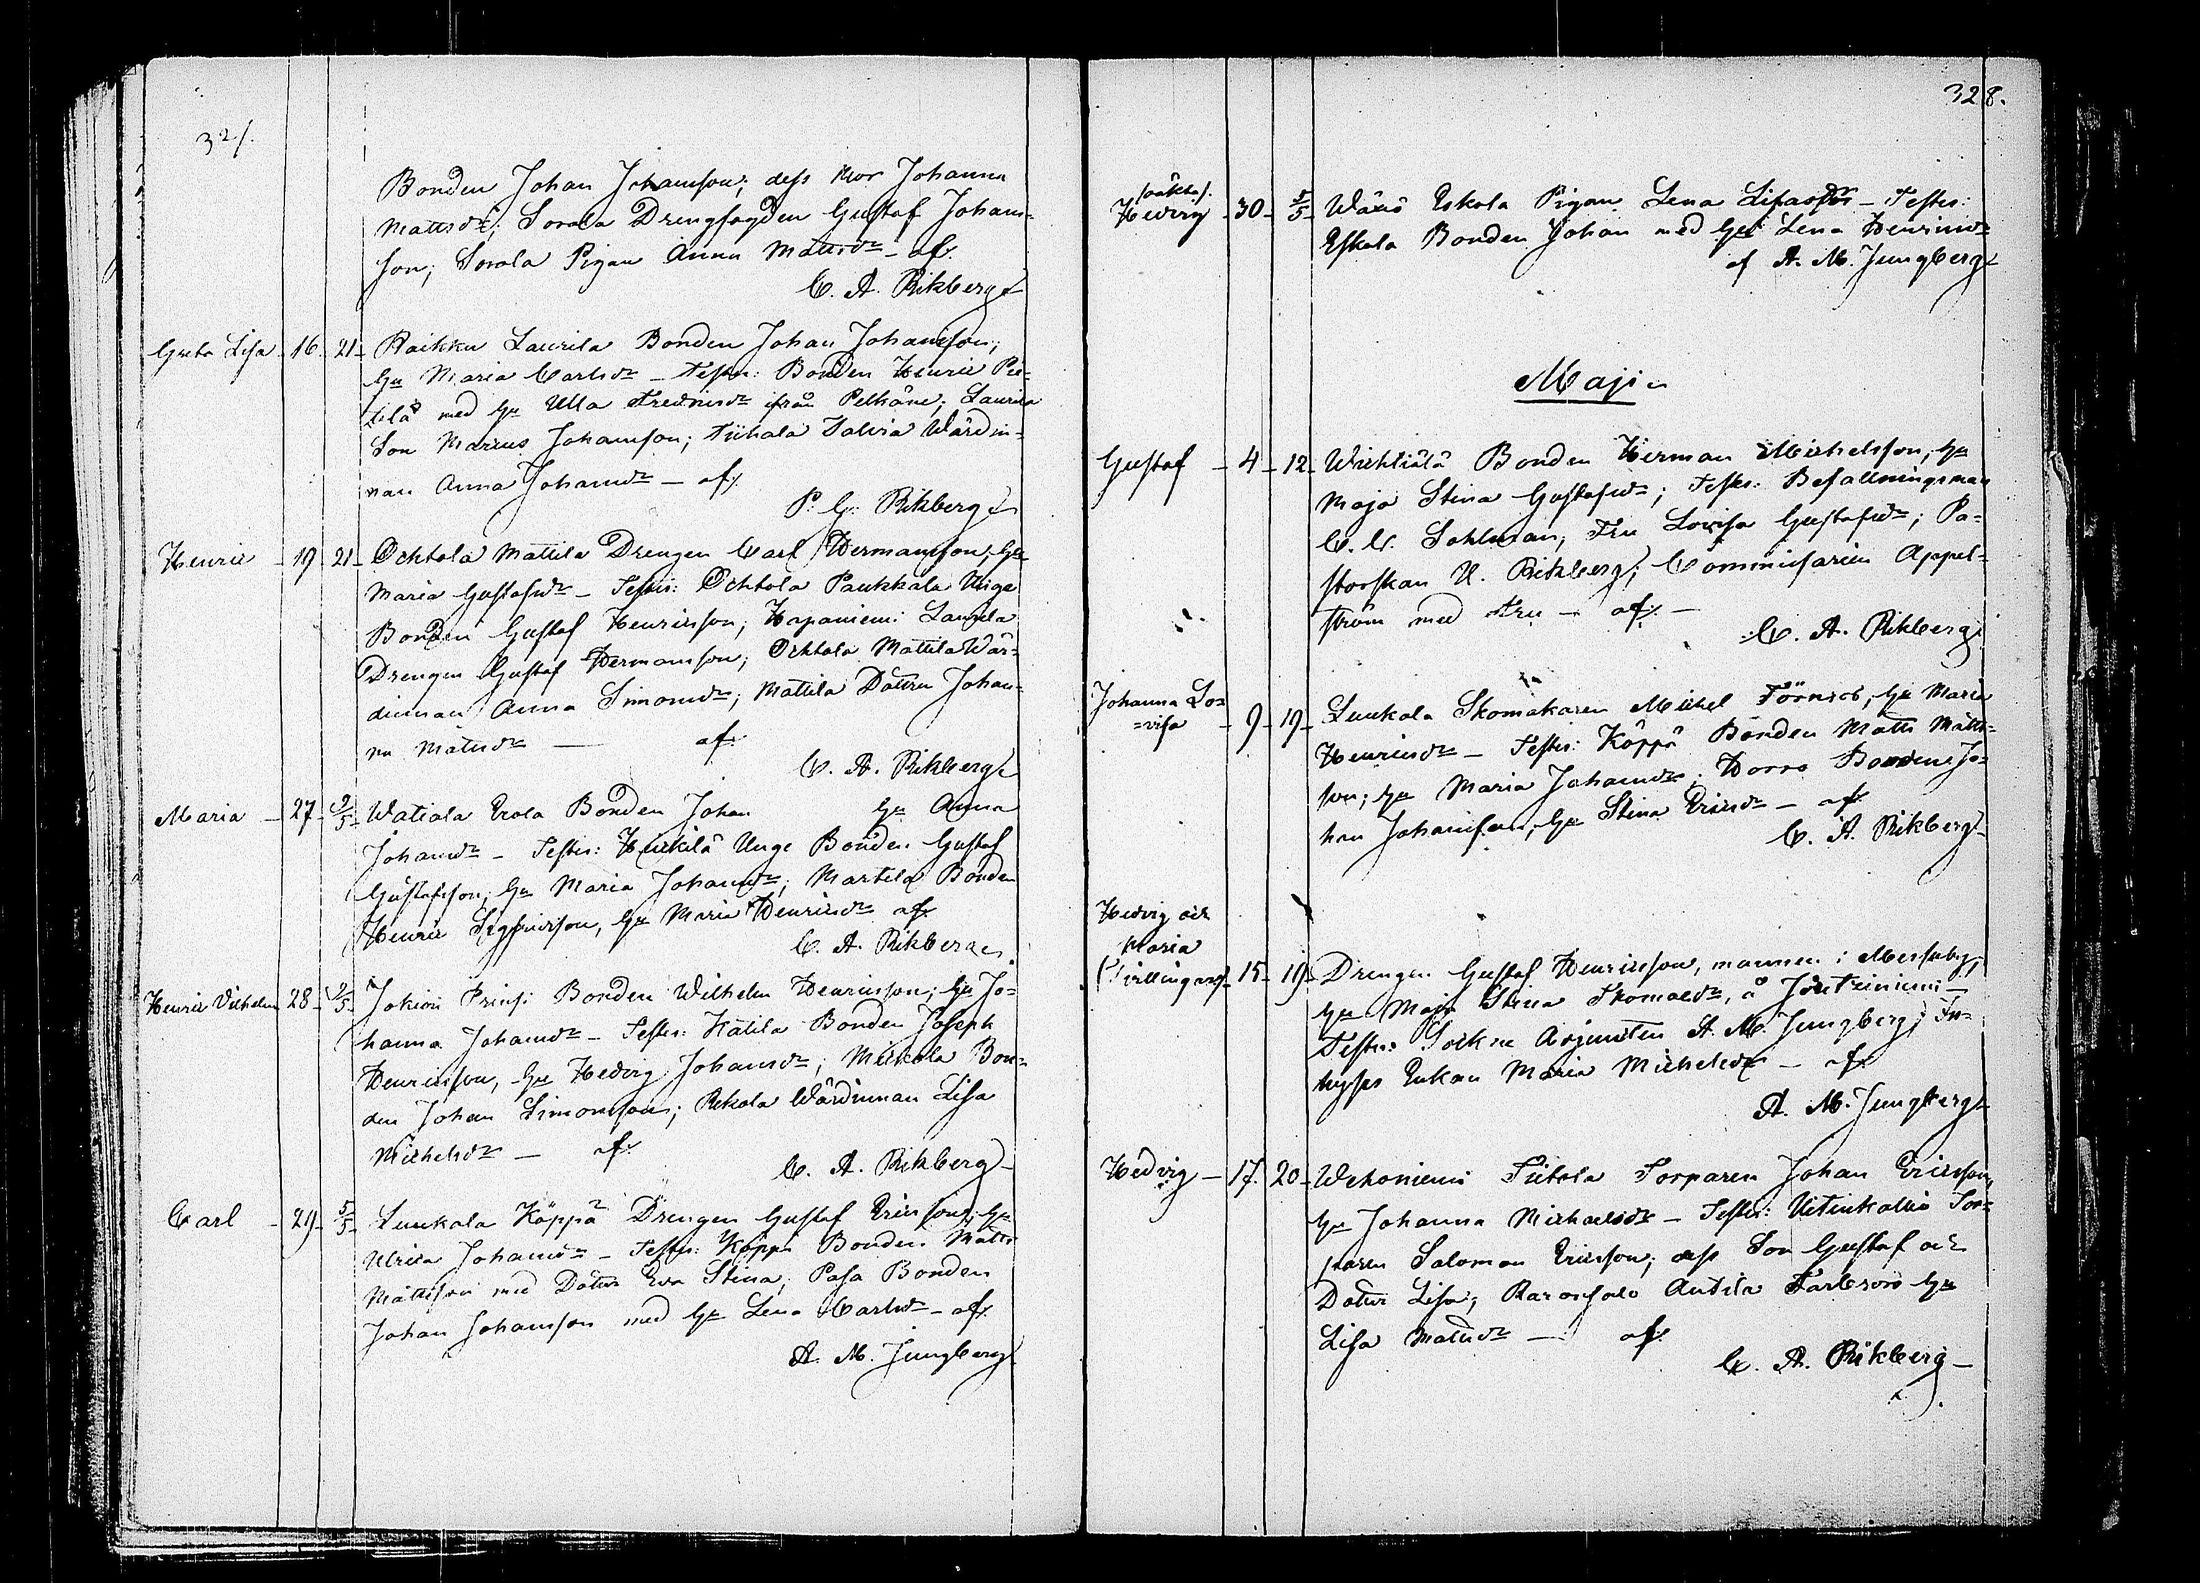 327.
Bonden Johan Johansson; dess Mor Johanna
Mattsdr; Sorola Drengfogden Gustaf Johans-
son; Sorola Pigan Anna Mattsdr - af
C. A. Rikberg
Greta Lisa - 16 - 21 - Raikku Laurila Bonden Johan Johansson;
hu Maria Carlsdr - Testes: Bonden Henric Pie-
tilä med hu Ulla från Pelkäne; Laurila
Son Marcus Johansson; Wärdin-
nan Anna Johansdr - af
P. G. Rikberg
Henric - 19 - 21 - Ochtola Mattila Drengen Carl Hermansson; hu
Maria Gustafsdr - Testes: Ochtola Paukkala Unge
Bonden Gustaf Henricsson; Hapaniemi Laurila
Drengen Gustaf Hermansson; Ochtola Mattila Wär-
dinnan Anna Simonsdr; Mattila Dottren Johan-
na Matsdr - af
C. A. Rikberg
Maria - 27 - 2/5 - Watiala Erola Bonden Johan hu Anna
Johansdr - Testes: Heikilä Unge Bonden Gustaf
Gustafsson, hu Maria Johansdr; Martila Bonden
Henric Sigfridsson, hu Maria Henricsdr af
C. A. Rikberg
Henric Vilhelm 28 - 2/5 - Jokioi Prinsi Bonden Wilhelm Henricsson; hu Jo-
hanna Johansdr - Testes: Kätilä Bonden Joseph
Henricsson, hu Hedvig Johansdr; Mickola Bon-
den Johan Simonsson; Rekola Wärdinnan Lisa
Michelsdr - af
C. A. Rikberg
Carl - 29 - 5/5 - Luukala Köppä Drengen Gustaf Ericsson; hu
Ulrica Johansdr - Testes: Köppä Bonden Matts
Mattsson med Dotter Eva Stina; Pasa Bonden
Johan Johansson med hu Lena Carlsdr - af
A. M. Jungberg
328.
(oäkta).
Hedvig - 30 - 5/5 - Wäxiö Eskola Pigan Lena Lisasdr - Testes:
Eskola Bonden Johan med hu Lena Henricsdr
af A. M. Jungberg
Maji
Gustaf - 4 - 12 - Wichtiälä Bonden Herman Michelsson, hu
Maja Stina Gustafsdr; Testes: Befallningsman
C. C. Sahlman, Fru Lovisa Gustafsdr; Pa-
storskan U. Rikberg; Commissarien Appel-
ström med Fru - af -
C. A. Rikberg
Johanna Lo-
=visa - 9 - 19 - Luukala Skomakaren Michel Törnros, hu Maria
Henricsdr - Testes: Köppä Bonden Matts Matts-
son; hu Maria Johansdr; Horro Bonden Jo-
han Johansson, hu Stina Ericsdr - af
C. A. Rikberg
Hedvig och
Maria
(Tvillingar) - 15 - 19 - Drengen Gustaf Henricsson, mannen i Messuby,
hu Maja Stina Thomasdr, å Joutziniemi -
Testes: Sockne Adjuncten A. M. Jungberg; In-
hyses Enkan Maria Michelsdr - af
A. M. Jungberg
Hedvig - 17. 20 - Wehoniemi Tiitola Torparen Johan Ericsson,
hu Johanna Michaelsdr - Testes: Uitinkallio Tor-
paren Salomon Ericsson; dess Son Gustaf och
Dotter Lisa; Antila Farbrors hu
Lisa Matsdr - af
C. A. Rikberg -